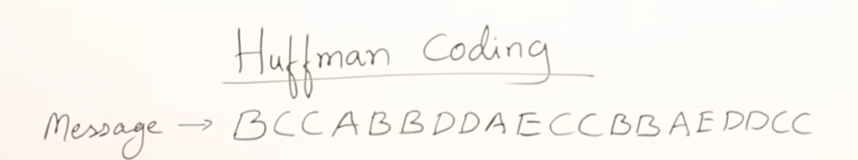 Huffman Coding
Message → BCCABBDDAECCBBAEDDCC